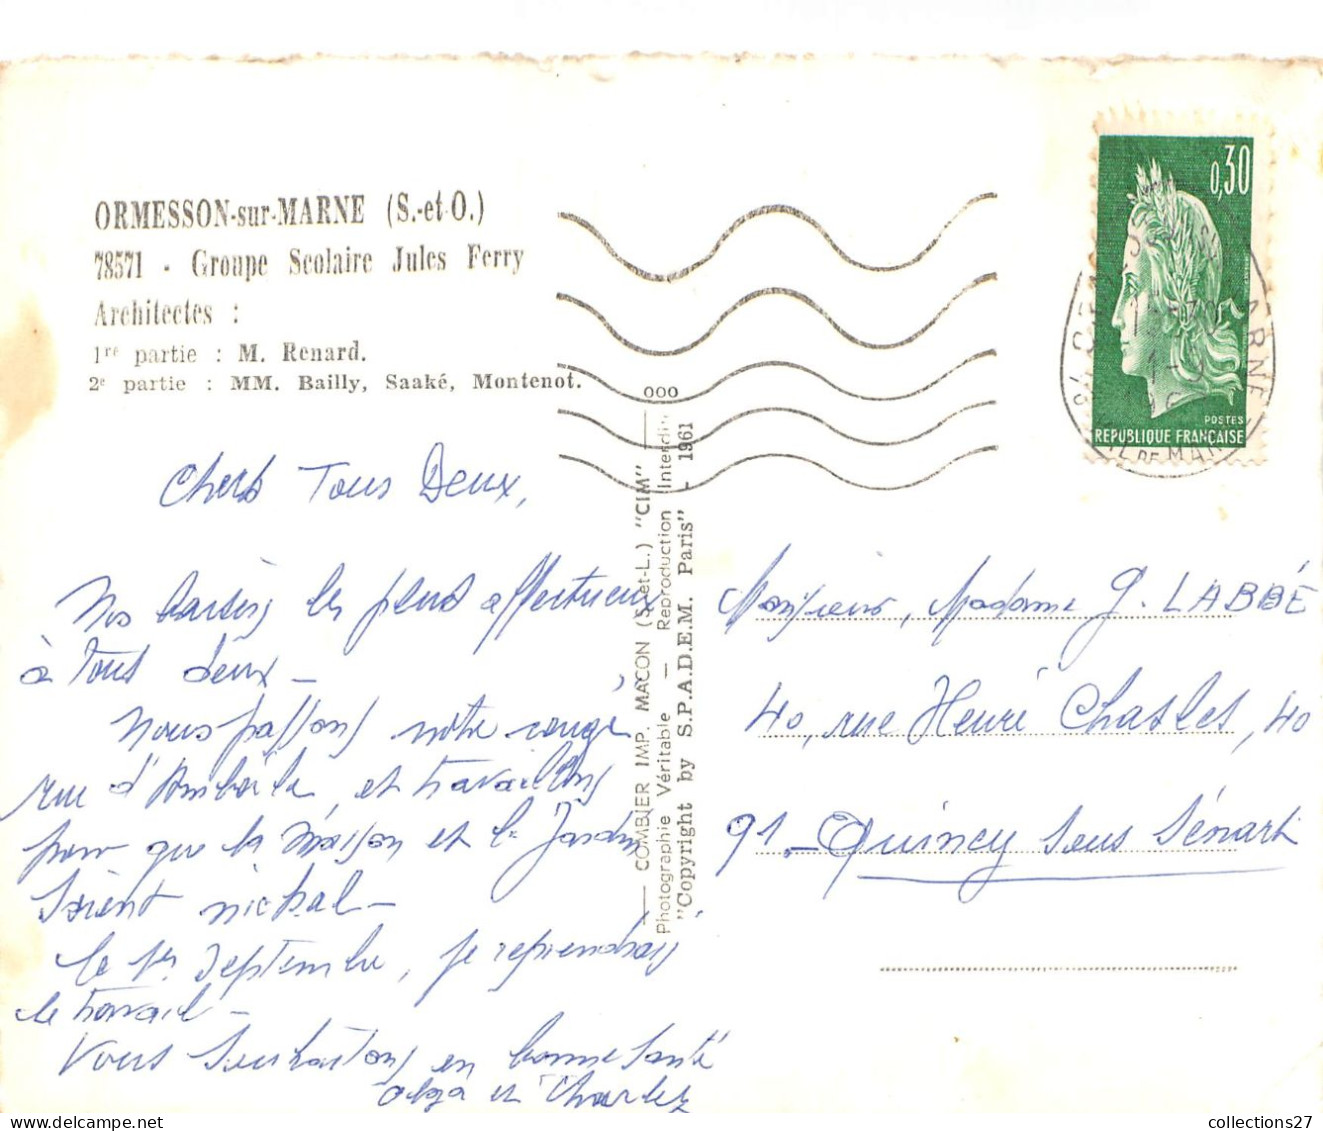 ORMESSON-sur-MARNE (S.-et-O.)
78571 - Groupe Scolaire Jules Ferry
Architectes :
1re partie : M. Renard.
2e partie : MM. Bailly, Saaké, Montenot.
0,30
POSTES
REPUBLIQUE FRANÇAISE
000
COMBIER IMP. MACON (S.-et-L.) "CIM"
Photographie Véritable — Reproduction Interdite
"Copyright by S.P.A.D.E.M. Paris" - 1961
Chers Tous Deux,
Nos baisers les plus affectueux
à Tous deux —
Nous passons notre congé
rue d'Amboile, et travaillons
pour que la Maison et le Jardin
soient nickel —
le 1er Septembre, je reprendrai
le travail —
Vous souhaitons en bonne santé
Olga et Charles
Monsieur, Madame G. LABBÉ
40, rue Henri Chasles, 40
91 - Quincy sous Sénart
collections27